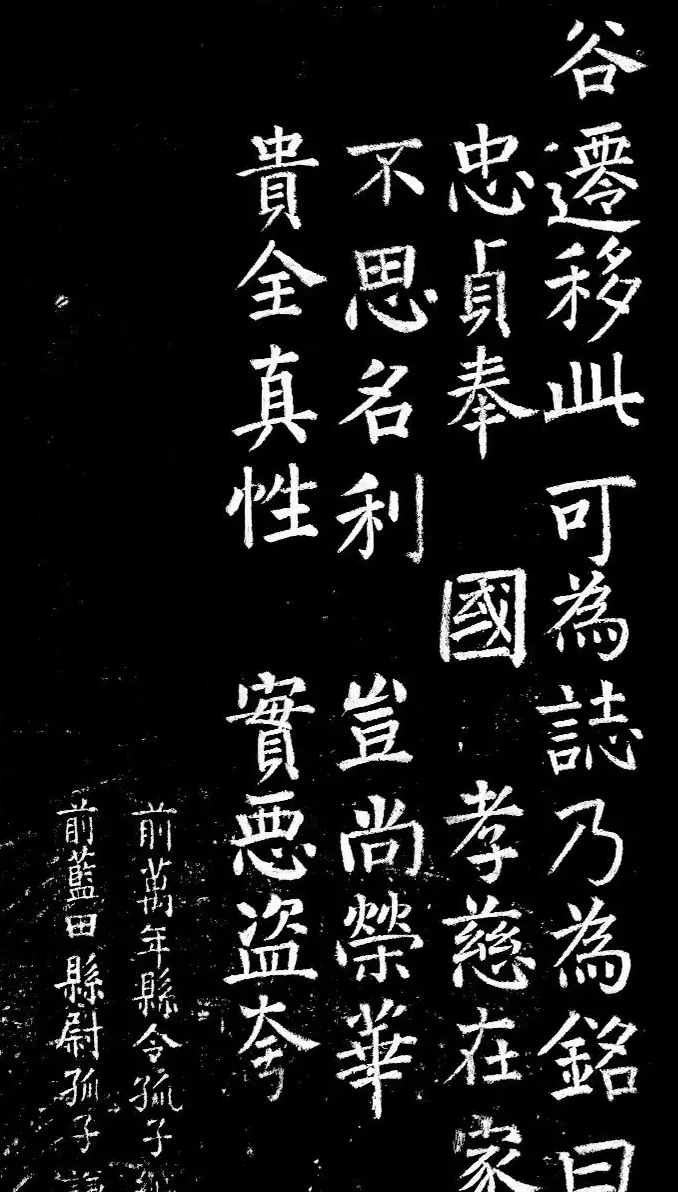 谷遷移此可為誌乃為銘曰
忠貞奉國孝慈在家
不思名利豈尚榮華
貴全真性實惡盜夸
前萬年縣令孤子
前藍田縣尉孤子